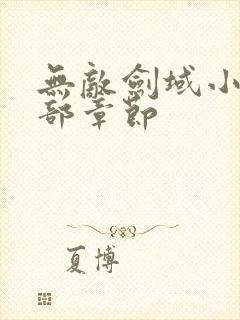 無敵劍域小
部章節
夏博